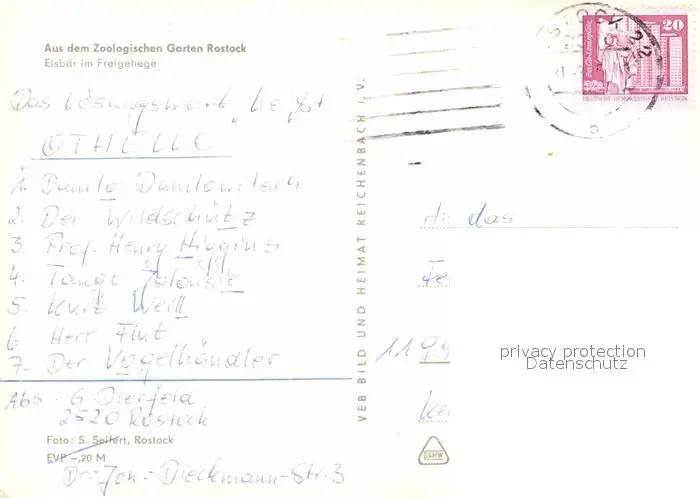 Aus dem Zoologischen Garten Rostock
Eisbär im Freigehege
Das Lösungswort heißt
OTHELLO
1. Danilo Danilowitsch
2. Der Wildschütz
3 Prof. Henry Higgins
4. Tango Jalousie
5. Kurt Weill
6 Herr Flut
7. Der Vogelhändler
Abs. G Dierfeld
2520 Rostock
Foto: S. Seifert, Rostock
EVP –,20 M
Dr.-Joh.-Dieckmann-Str. 3
VEB BILD UND HEIMAT REICHENBACH i. V.
ROSTOCK 22
Berlin-Leninplatz
20
DEUTSCHE DEMOKRATISCHE REPUBLIK
An das
Fe
1199
privacy protection
Datenschutz